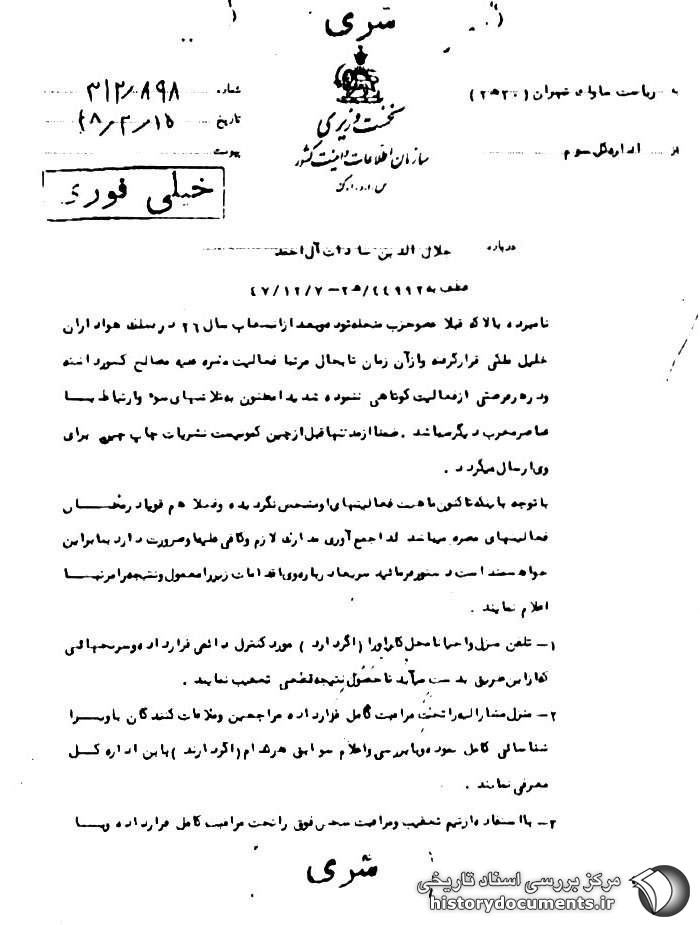 سری
نخست وزیری
سازمان اطلاعات و امنیت کشور
س.ا.و.ا.ک
به ریاست ساواک تهران (۲۰ هـ ۳)
از اداره کل سوم
شماره ۳۱۲/۸۹۸
تاریخ ۴۸/۲/۱۵
پیوست
خیلی فوری
درباره جلال الدین سادات آل احمد
عطف به ۴۷/۱۲/۷ -
نامبرده بالا که قبلا عضو حزب منحله توده و بعد از انشعاب سال ۲۶ در سلک هواداران
خلیل ملکی قرار گرفته و از آن زمان تا بحال مرتبا فعالیت مضره علیه مصالح کشور داشته
و در هر فرصتی از فعالیت کوتاهی ننموده شدیدا مظنون به تلاشهای سوء و ارتباط با
عناصر مخرب دیگر میباشد. ضمنا از مدتها قبل از چین کمونیست نشریات چاپ چین برای
وی ارسال میگردد.
با توجه باینکه تاکنون ماهیت فعالیتهای او مشخص نگردیده و فعلا هم قویا در مظان
فعالیتهای مضره میباشد لذا جمع آوری مدارک لازم و کافی علیه او ضرورت دارد بنابراین
خواهشمند است دستور فرمائید سریعا درباره وی اقدامات زیر را معمول و نتیجه را مرتبا
اعلام نمایند.
۱- تلفن منزل و احیانا محل کار او را (اگر دارد) مورد کنترل دائمی قرار داده و سرنخهائی
که از این طریق بدست میآید تا حصول نتیجه قطعی تعقیب نمایند.
۲- منزل مشارالیه را تحت مراقبت کامل قرار داده مراجعین و ملاقات کنندگان با وی را
شناسائی کامل نموده و با بررسی و اعلام سوابق هر کدام (اگر دارند) باین اداره کل
معرفی نمایند.
۳- با استفاده از تیم تعقیب و مراقبت شخص فوق را تحت مراقبت کامل قرار داده و با
سری
مرکز بررسی اسناد تاریخی
historydocuments.ir